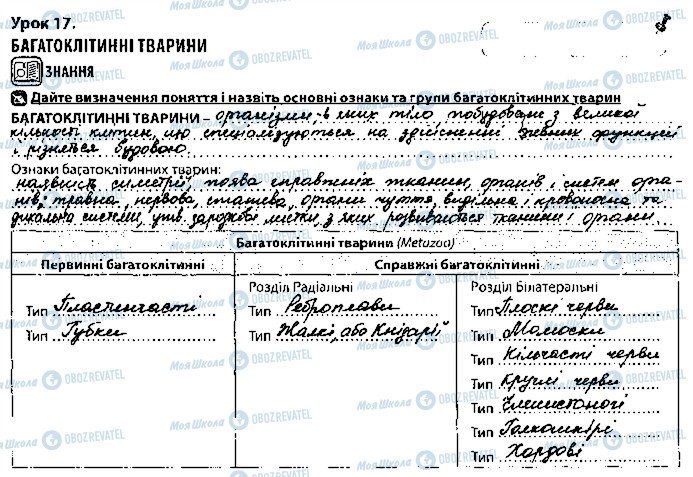 Урок 17.
БАГАТОКЛІТИННІ ТВАРИНИ
ЗНАННЯ
Дайте визначення поняття і назвіть основні ознаки та групи багатоклітинних тварин
БАГАТОКЛІТИННІ ТВАРИНИ – організми, в яких тіло побудовані з великої
кількості клітин, що спеціалізуються на здійсненні певних функцій
і різняться будовою.
Ознаки багатоклітинних тварин:
наявність симетрії, поява справжніх тканин, органів і систем орга-
нів: травна, нервова, статева, органи чуття, видільна і кровоносна та
дихальна системи, утв. зародкові листки, з яких розвиваються тканини і органи
Багатоклітинні тварини (Metazoa)
Первинні багатоклітинні
Справжні багатоклітинні
Розділ Радіальні
Розділ Білатеральні
Тип Пластинчасті
Тип Реброплави
Тип Плоскі черви
Тип Губки
Тип Жалкі, або Кнідарії
Тип Молюски
Тип Кільчасті черви
Тип Круглі черви
Тип Членистоногі
Тип Голкошкірі
Тип Хордові
Моя Школа OBOZREVATEL